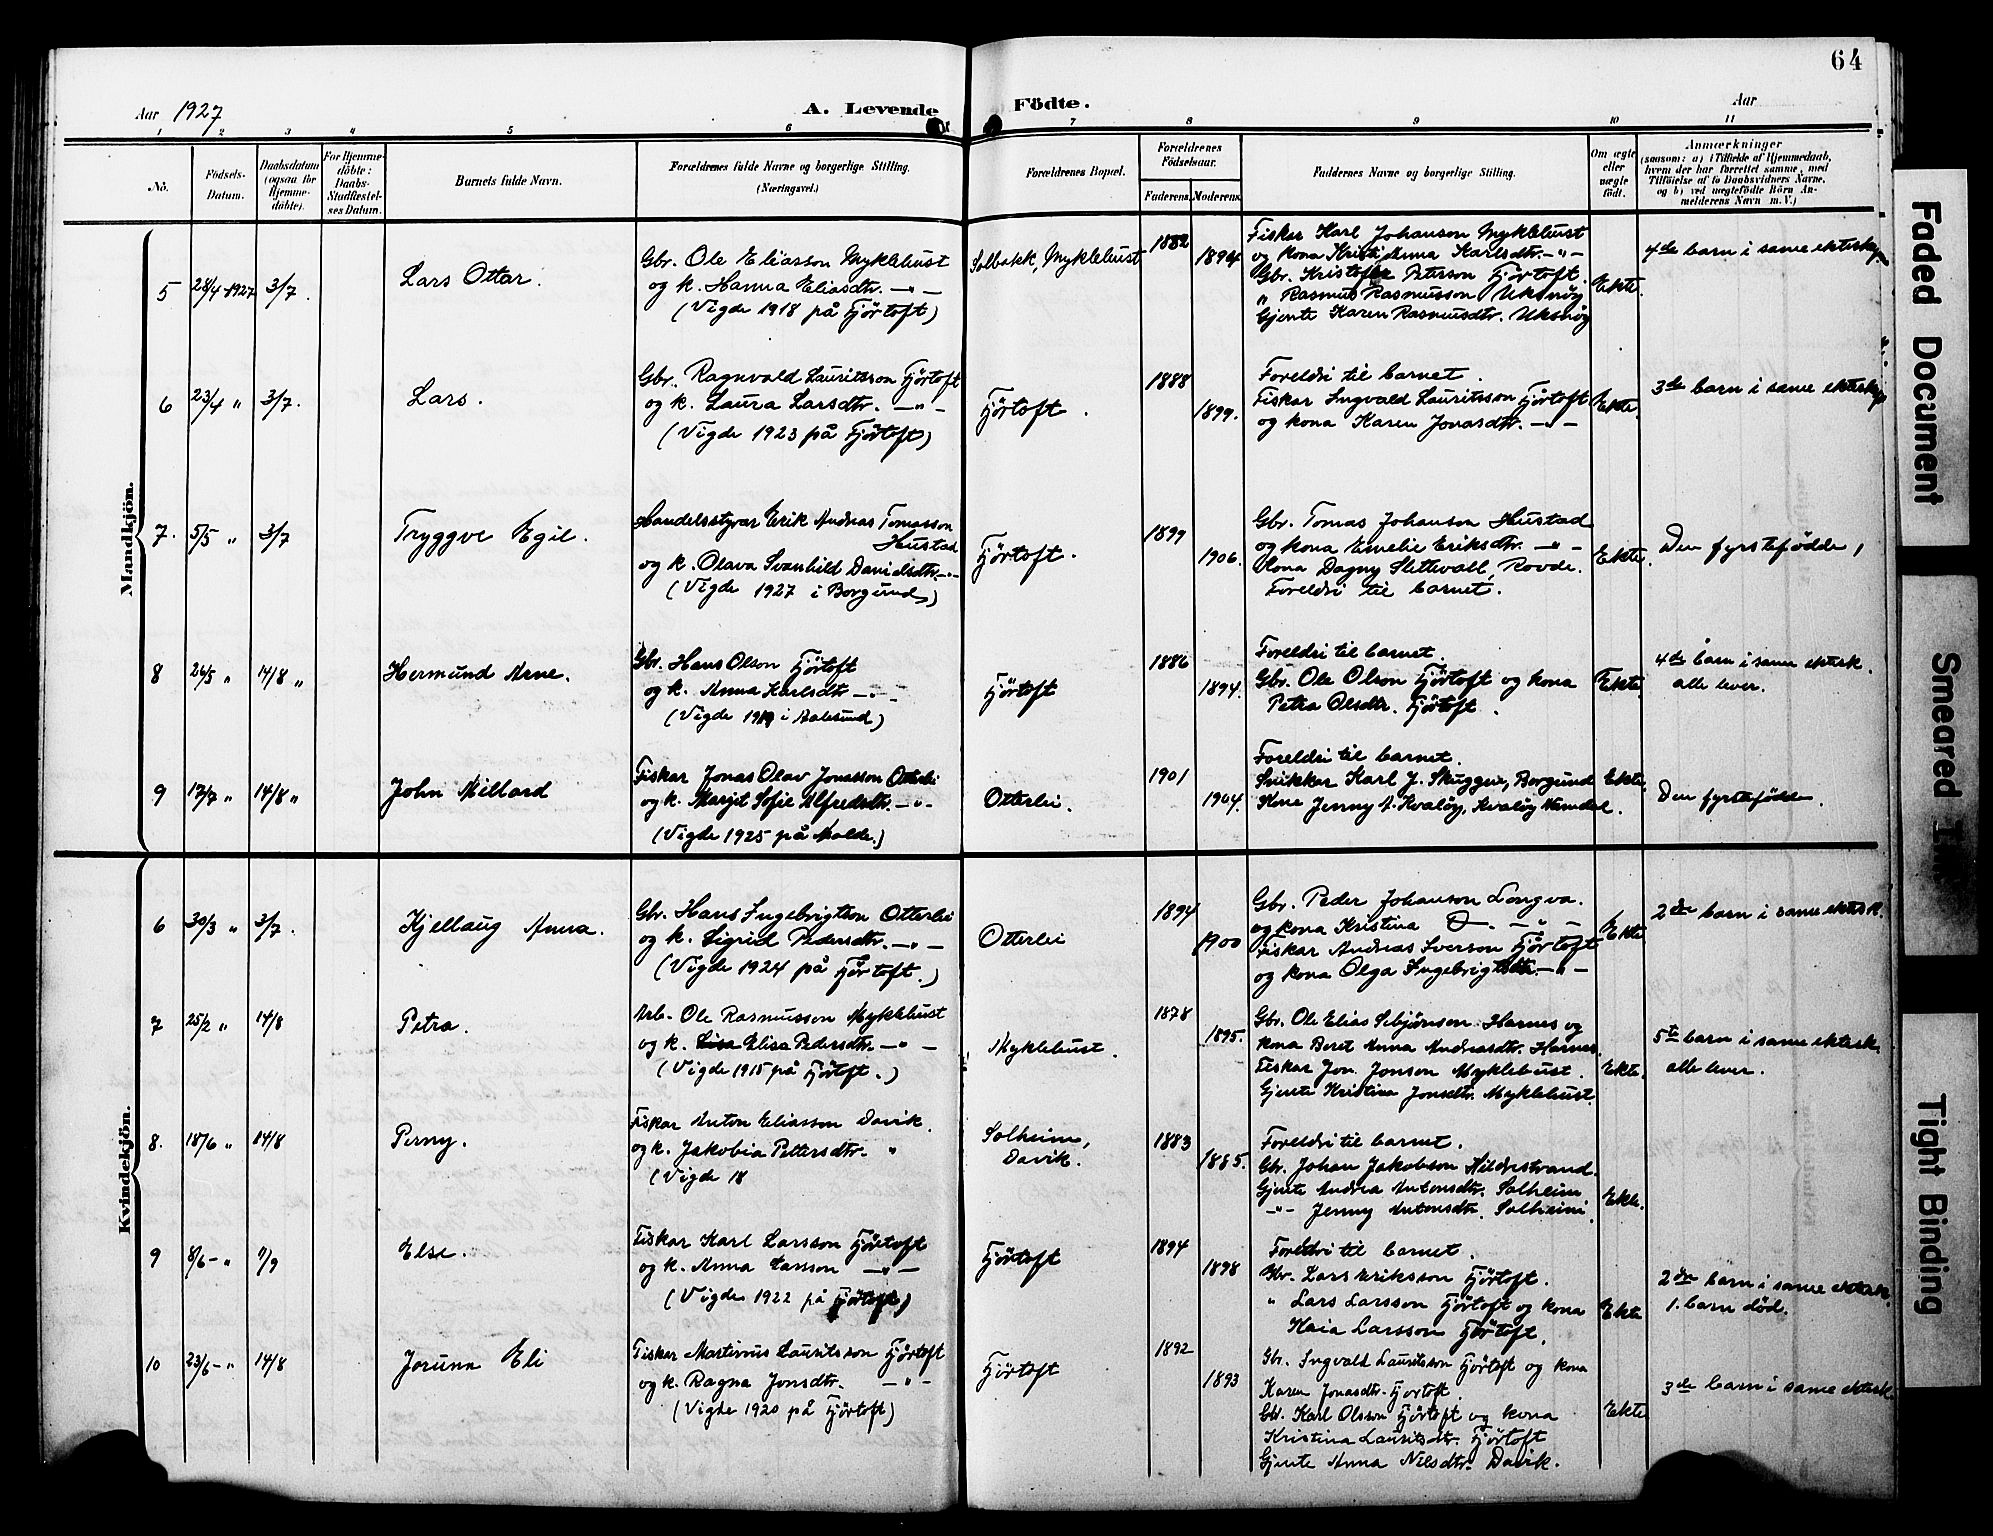 64
Aar 1927
A. Levende Födte.
Aar
1 2 3 4 5 6 7 8 9 10 11
No.
Födsels-Datum.
Daabsdatum (ogsaa for Hjemme-döbte).
For Hjemme-döbte: Daabs-Stadfæstel-ses Datum.
Barnets fulde Navn.
Forældrenes fulde Navne og borgerlige Stilling. (Næringsvei.)
Forældrenes Bopæl.
Forældrenes Födselsaar.
Faderens. Moderens.
Faddernes Navne og borgerlige Stilling.
Om ægte eller uægte födt.
Anmærkninger
(saasom: a) i Tilfælde af Hjemmedaab, hvem der har forrettet samme, med Tilföielse af to Daabsvidners Navne, og b) ved uægtefödte Börn Anmelderens Navn m. V.)
Mandkjön.
5 28/4 1927 3/7. Lars Ottar.
Gbr. Ole Eliasson Myklebust
og k. Hanna Eliasdtr. —"—
(Vigde 1918 på Fjörtoft)
Solbakk, Myklebust
1882 1894
Fiskar Karl Johanson Myklebust
og kona Kristi Anna Karlsdtr. —"—
Gbr. Kristofer Peterson Fjörtoft.
" Rasmus Rasmusson Uksnöy
Gjente Karen Rasmusdtr. Uksnöy
Ekte.
4de barn i same ekteskap
6 23/4 " 3/7. Lars.
Gbr. Ragnvald Lauritsson Fjörtoft
og k. Laura Larsdtr. —"—
(Vigde 1923 på Fjörtoft)
Fjörtoft.
1888 1899.
Foreldri til barnet.
Fiskar Ingvald Lauritsson Fjörtoft
og kona Karen Jonasdtr. —"—
Ekte.
3de barn i same ekteskap
7. 5/5 " 3/7 Tryggve Egil.
Handelsstyrar Erik Andreas Tomasson
Hustad
og k. Olava Svanhild Davidsdtr. —"—
(Vigde 1927 i Borgund)
Fjörtoft.
1899 1906.
Gbr. Tomas Johanson Hustad
og kona Emelie Eriksdtr. —"—
Kona Dagny Slettevall, Rovde.
Foreldri til barnet.
Ekte.
Den fyrstefødde,
8 26/5 " 14/8 " Hermund Arne.
Gbr. Hans Olson Fjörtoft
og k. Anna Karlsdtr —"—
(Vigde 1919 i Aalesund)
Fjörtoft
1886 1894.
Foreldri til barnet.
Gbr. Ole Olson Fjörtoft og kona
Petra Olsdtr. Fjörtoft.
Ekte.
4de barn i same ektesk.
alle lever.
9 17/7 " 14/8 " John Millard
Fiskar Jonas Olav Jonasson Otterlei
og k. Marjit Sofie Alfredsdtr. —"—
(Vigde 1925 på Molde.)
Otterlei.
1901 1904.
Foreldri til barnet.
Snikkar Karl J. Skuggevi, Borgund
Kone Jenny A. Kvalöy, Kvalöy Namdal.
Ekte.
Den fyrstefødde.
Kvindekjön.
6 30/3 " 3/7. Kjellaug Anna.
Gbr. Hans Ingebrigtson Otterlei
og k. Sigrid Pedersdtr. —"—
(Vigde 1924 på Fjörtoft.)
Otterlei
1894 1900
Gbr. Peder Johanson Longva.
og kona Kristina D. —"—
Fiskar Andreas Sverson Fjörtoft
og kona Olga Ingebrigtsdtr. —"—
Ekte
2dre barn i same ektesk.
7 25/2 " 14/8 Petra.
Arb. Ole Rasmusson Myklebust
og k. Elise Pedersdtr. —"—
(Vigde 1915 på Fjörtoft.)
Myklebust.
1878 1895.
Gbr. Ole Elias Sebjörnson Harnes og
kona Beret Anna Andreasdtr. Harnes.
Fiskar Jon Jonson Myklebust.
Gjente Kristina Jonsdtr. Myklebust.
Ekte.
5te barn i same ektesk.
alle lever.
8. 18/6 " 14/8 Perny.
Fiskar Anton Eliasson Davik.
og k. Jakobia Pettersdtr. "
(Vigde 18
Solheim,
Davik.
1883 1885.
Foreldri til barnet.
Gbr. Johan Jakobson Hildrestrand.
Gjente Andrea Antonsdtr. Solheim.
—"— Jenny Antonsdtr. Solheim.
Ekte.
9 8/6 — " 4/9 Else.
Fiskar Karl Larsson Fjörtoft
og k. Anna Larsson —"—
(Vigde 1922 på Fjörtoft)
Fjörtoft
1894 1898
Foreldri til barnet.
Gbr. Lars Eriksson Fjörtoft.
" Lars Larsson Fjörtoft og kona
Maia Larsson Fjörtoft.
Ekte
2dre barn i same ektesk.
1. barn död.
10 23/6 — " 14/8 Jorunn Eli
Fiskar Martinus Lauritsson Fjörtoft
og k. Ragna Jonsdtr. —"—
(Vigde 1920 på Fjörtoft)
Fjörtoft
1892 1893
Gbr. Ingvald Lauritsson Fjörtoft og kona
Karen Jonasdtr. Fjörtoft.
Gbr. Karl Olsson Fjörtoft og kona
Kristina Lauritsdtr. Fjörtoft
Gjente Anna Nilsdtr. Davik.
Ekte
3de barn i same ektesk.
Faded Document
Smeared Ink
Tight Binding